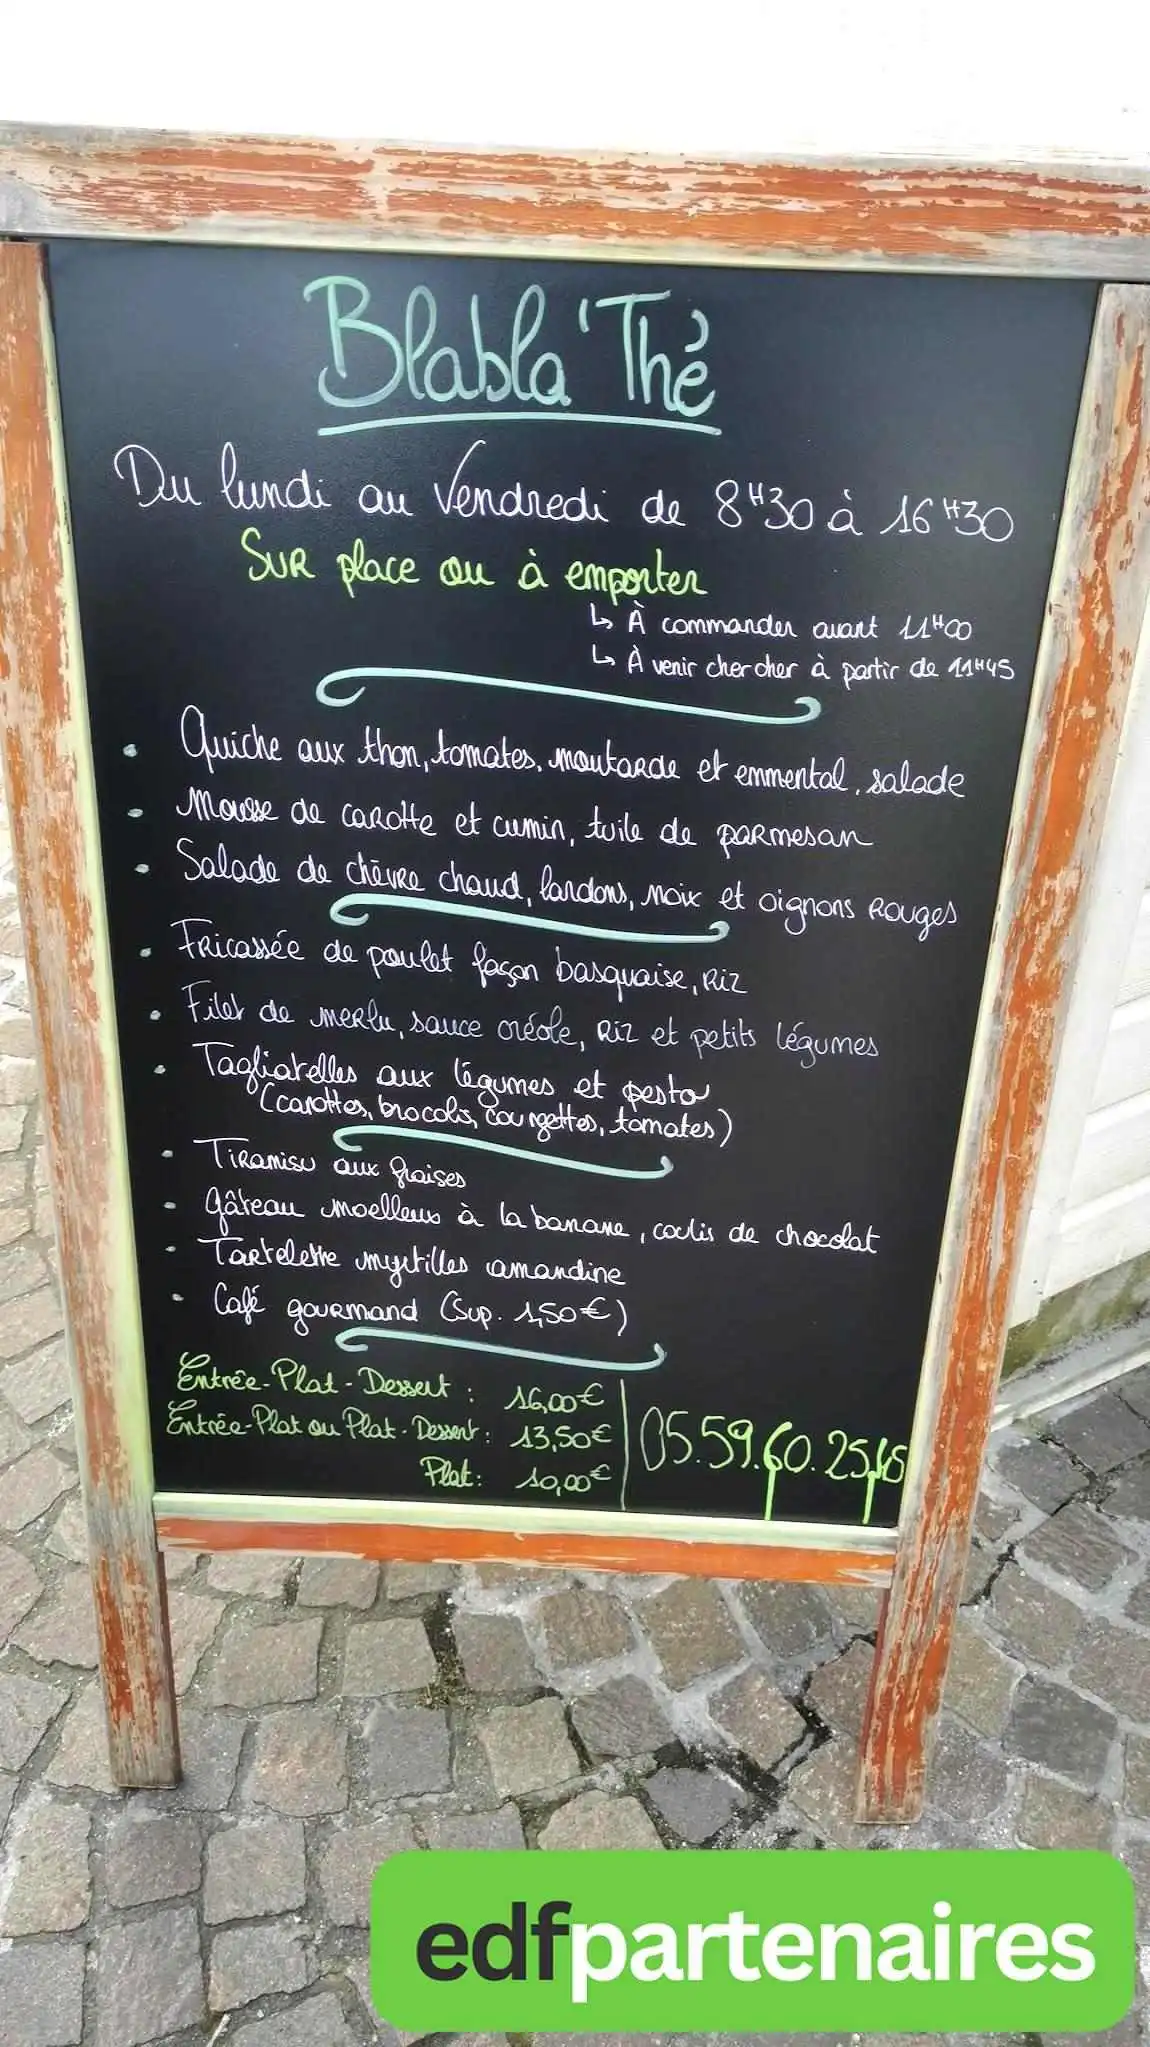 Blabla'Thé
Du lundi au Vendredi de 8H30 à 16H30
Sur place ou à emporter
↳ À commander avant 11H00
↳ À venir chercher à partir de 11H45
• Quiche aux thon, tomates, moutarde et emmental, salade
• Mousse de carotte et cumin, tuile de parmesan
• Salade de chèvre chaud, lardons, noix et oignons rouges
• Fricassée de poulet façon basquaise, riz
• Filet de merlu, sauce créole, riz et petits légumes
• Tagliatelles aux légumes et pesto
(carottes, brocolis, courgettes, tomates)
• Tiramisu aux fraises
• Gâteau moelleux à la banane, coulis de chocolat
• Tartelette myrtilles amandine
• Café gourmand (Sup. 1,50€)
Entrée-Plat-Dessert : 16,00€
Entrée-Plat ou Plat-Dessert : 13,50€
Plat : 10,00€
05.59.60.25.
edfpartenaires